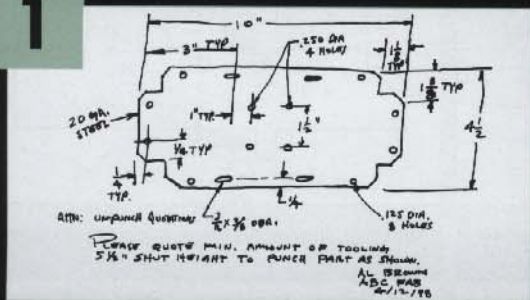 1
10"
3" TYP
.250 DIA
4 HOLES
TYP
20 GA.
STEEL
1" TYP.
1 1/2"
TYP
4 1/2
1/4 TYP
1/4
TYP.
1/4
ATTN: UNIPUNCH QUOTATIONS
x 3/8 OBR.
.125 DIA.
8 HOLES
PLEASE QUOTE MIN. AMOUNT OF TOOLING
5 1/8" SHUT HEIGHT TO PUNCH PART AS SHOWN.
AL BROWN
ABC FAB
4/12/98